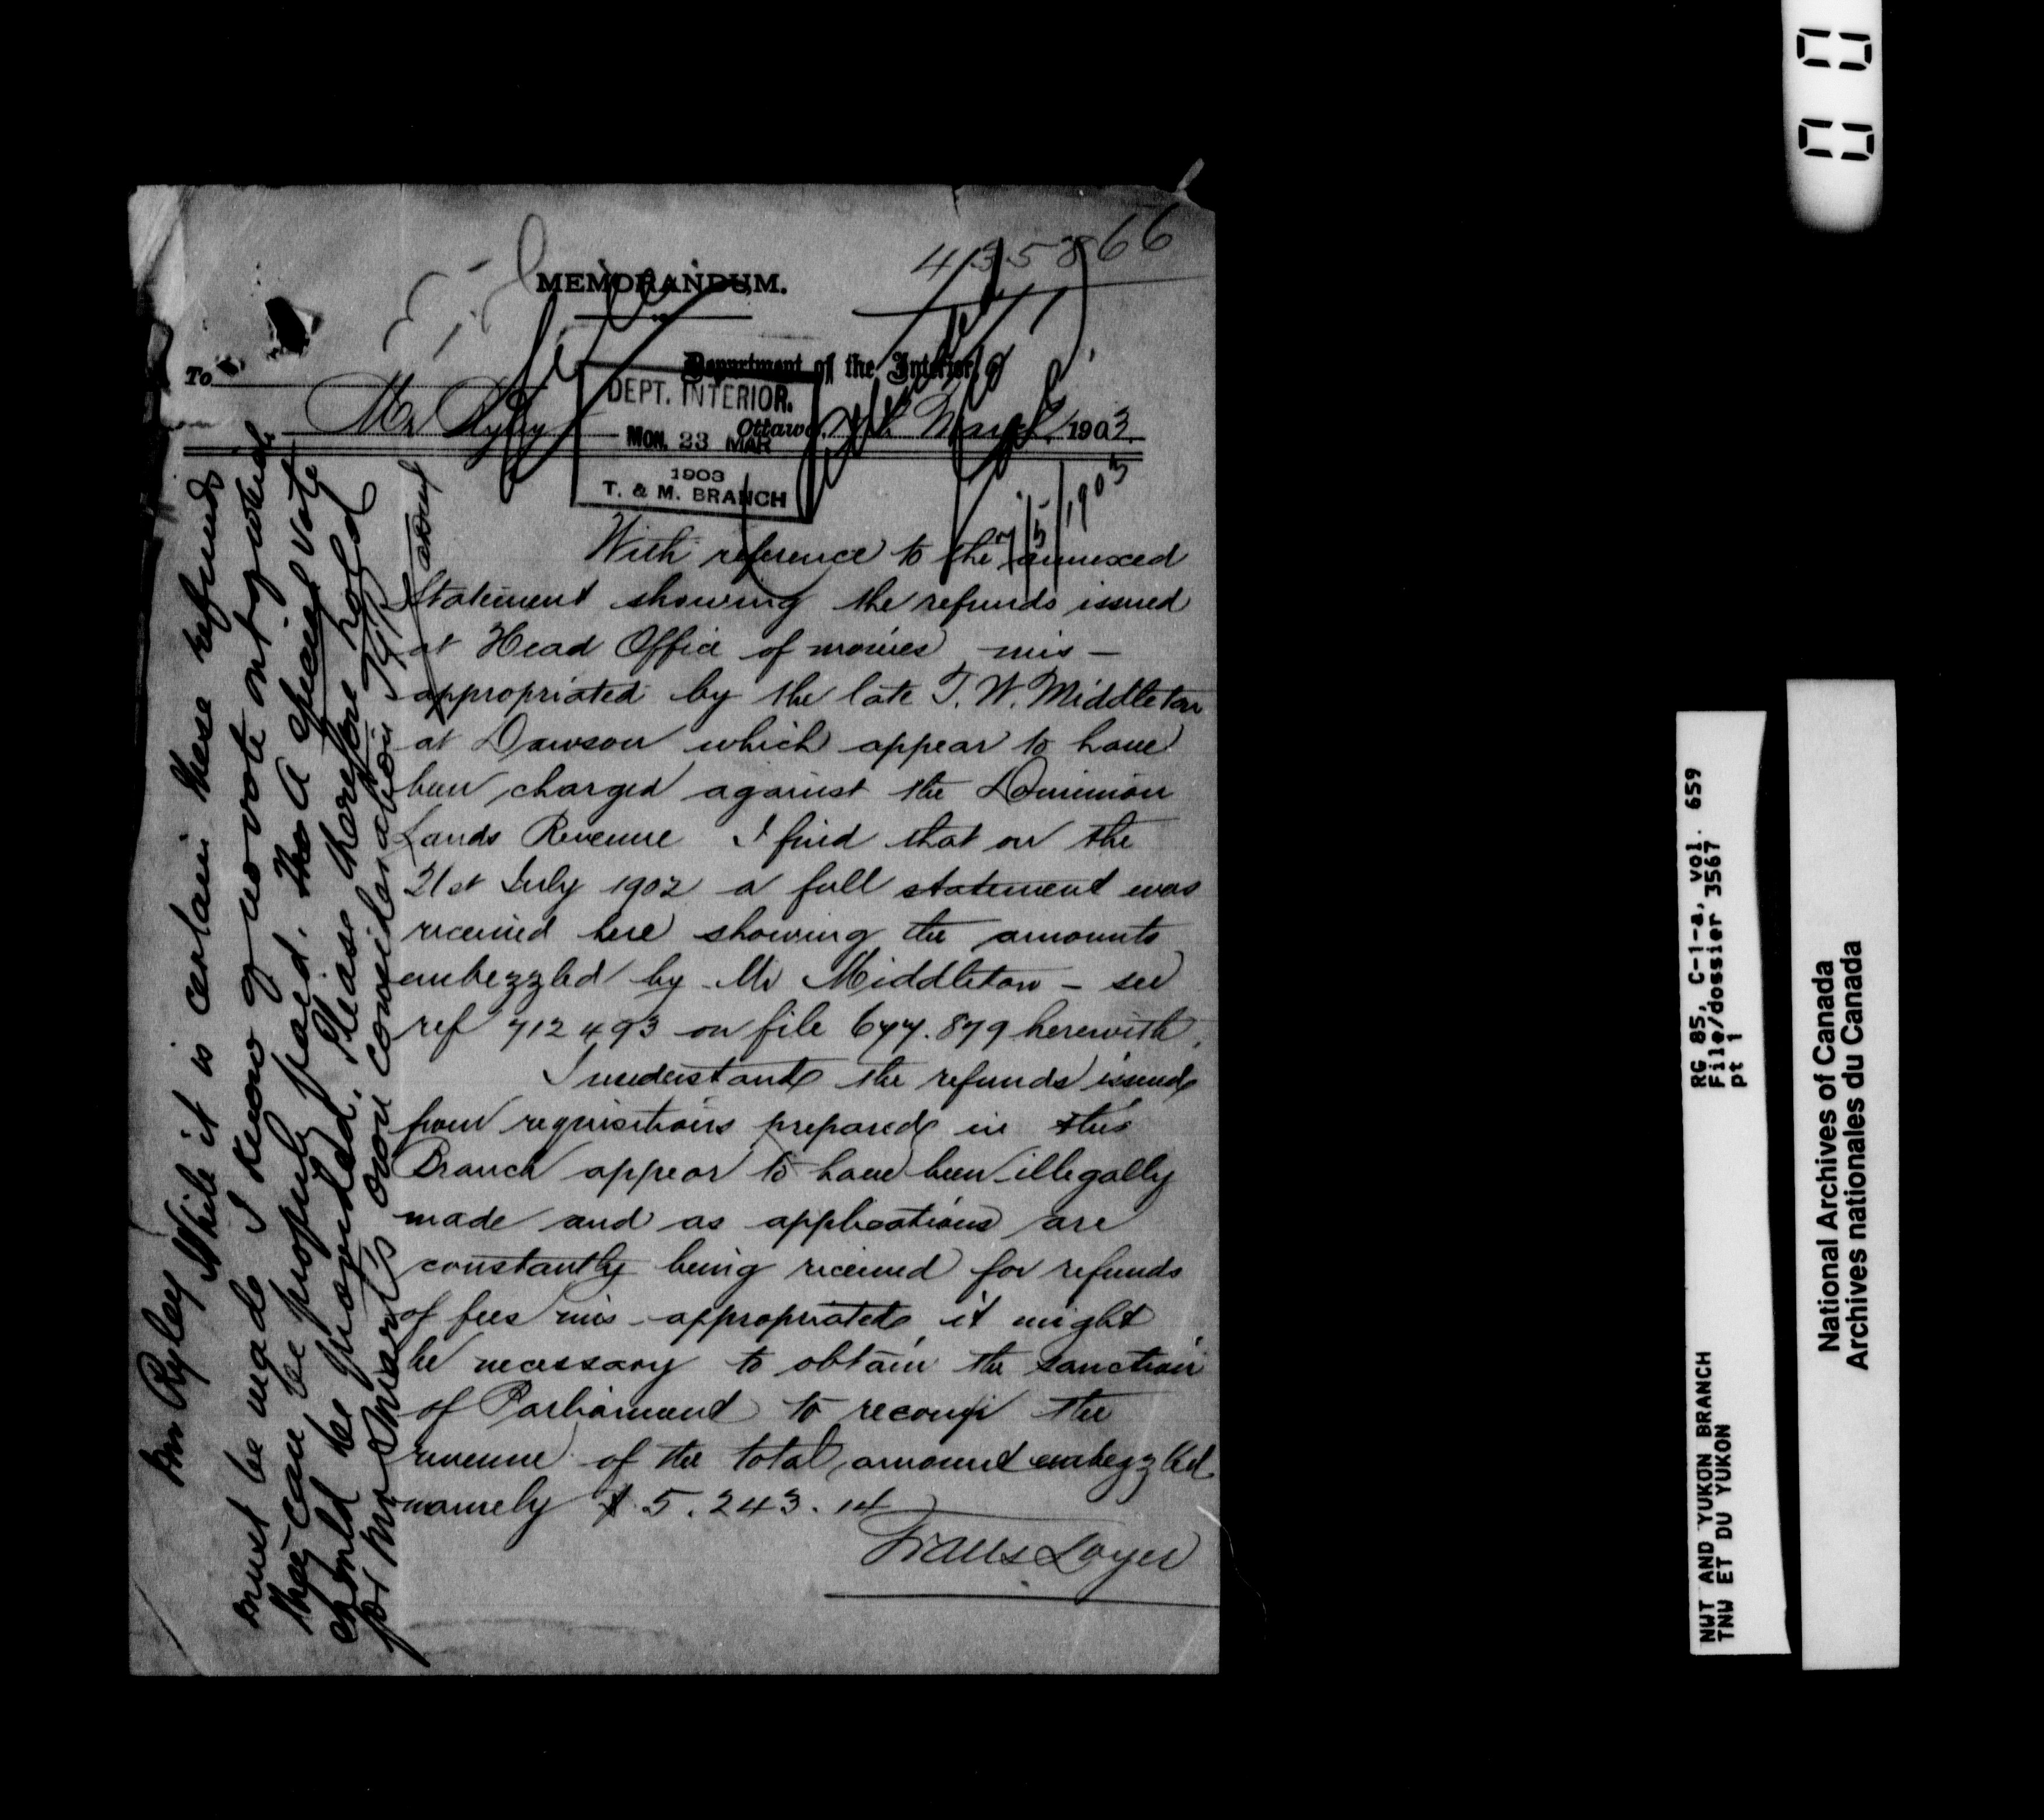 435866
MEMORANDUM.
Department of the Interior,
To
Mr Ryley
Ottawa, March 1903.
DEPT. INTERIOR.
MON. 23 MAR
1903
T. & M. BRANCH
7/5/1903
With reference to the annexed
Statement showing the refunds issued
at Head Office of monies mis-
appropriated by the late T. W. Middleton
at Dawson which appear to have
been charged against the Dominion
Lands Revenue I find that on the
21st July 1902 a full statement was
received here showing the amounts
embezzled by Mr Middleton - see
ref 712493 on file 677.879 herewith.
I understand the refunds issued
from requisitions prepared in this
Branch appear to have been illegally
made and as applications are
constantly being received for refunds
of fees mis-appropriated it might
be necessary to obtain the sanction
of Parliament to recoup the
revenue of the total amount embezzled
namely $5.243.14
Frans Loyer
Mr Ryley While it is certain these refunds
must be made I know of no vote out of which
they can be properly paid. A special vote
should be provided. Please therefore hold
for Mr Smart's own consideration
NWT AND YUKON BRANCH
TNW ET DU YUKON
RG 85, C-1-a, vol. 659
File/dossier 3567
pt 1
National Archives of Canada
Archives nationales du Canada